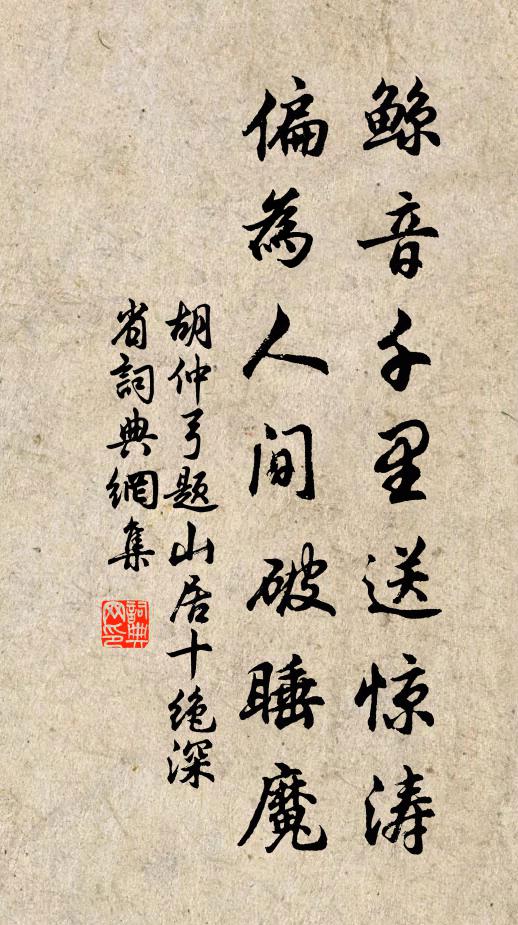 鲸音千里送惊涛
偏為人间破睡魔
胡仲弓题山居十绝深
省詞典網集
詞典
网印